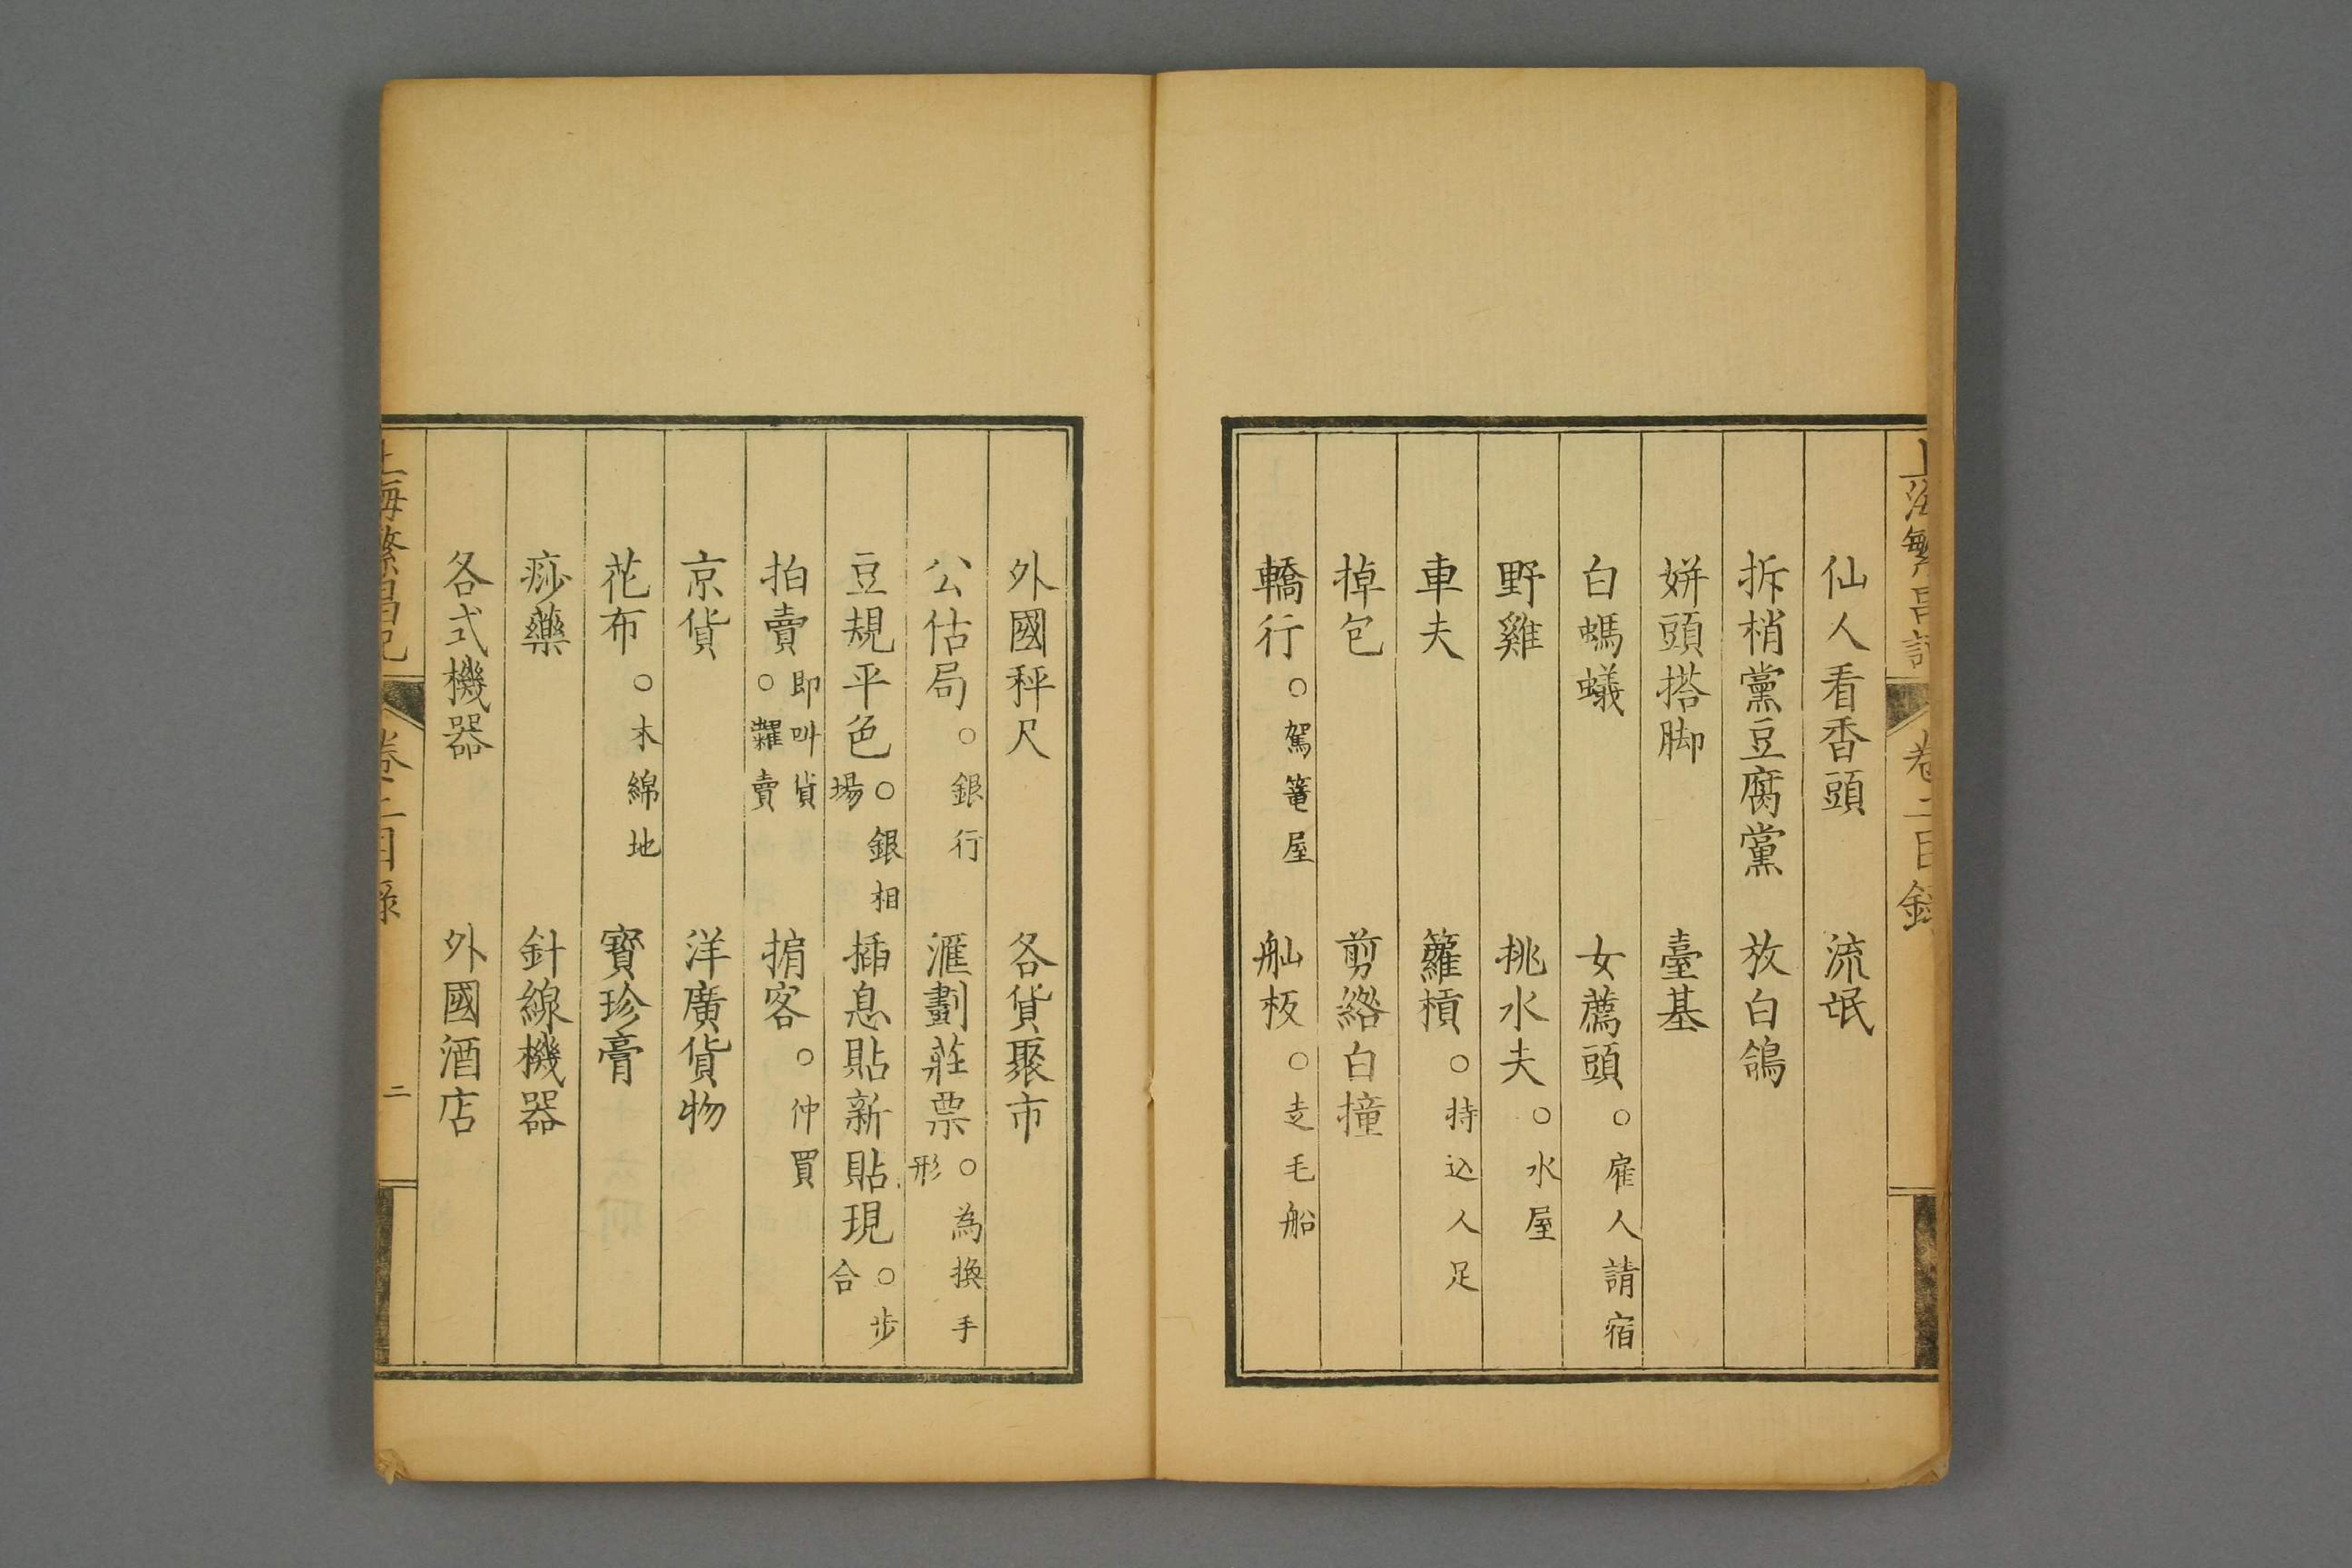 上海繁昌記 卷二目錄
仙人看香頭 流氓
拆梢黨豆腐黨 放白鴿
姘頭搭脚 臺基
白螞蟻 女薦頭○雇人請宿
野雞 挑水夫○水屋
車夫 籮槓○持込人足
掉包 剪綹白撞
轎行○駕篭屋 舢板○走毛船
外國秤尺 各貨聚市
公估局○銀行 滙劃莊票○為換手形
豆規平色○銀相場 插息貼新貼現○步合
拍賣○即叫貨糶賣 掮客○仲買
京貨 洋廣貨物
花布○木綿地 寶珍膏
痧藥 針線機器
各式機器 外國酒店
上海繁昌記 卷二目錄 二